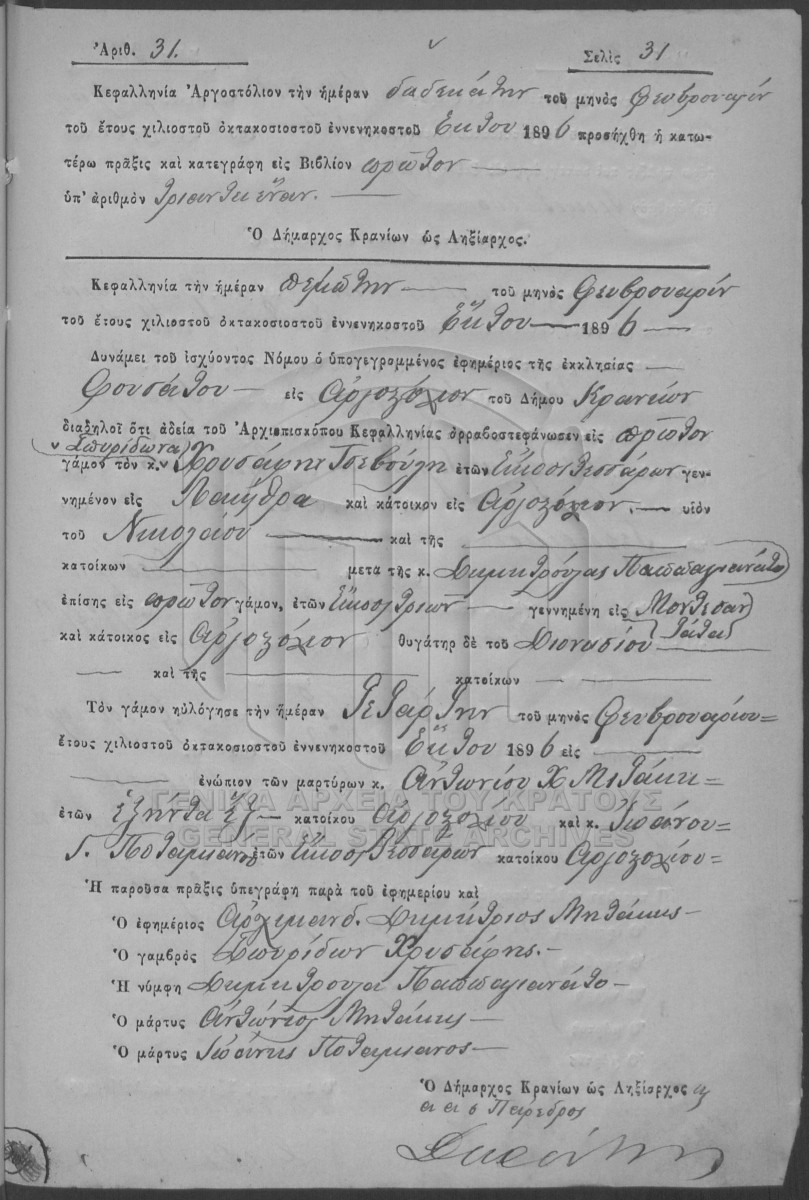 Ἀριθ. 31. Σελὶς 31
Κεφαλληνία Ἀργοστόλιον τὴν ἡμέραν δωδεκάτην τοῦ μηνὸς Φευβρουαρίου
τοῦ ἔτους χιλιοστοῦ ὀκτακοσιοστοῦ ἐννενηκοστοῦ ἕκτου 1896 προσήχθη ἡ κατω-
τέρω πρᾶξις καὶ κατεγράφη εἰς Βιβλίον πρῶτον
ὑπ' ἀριθμὸν τριανταέναν.
Ὁ Δήμαρχος Κρανίων ὡς Ληξίαρχος.
Κεφαλληνία τὴν ἡμέραν πέμπτην τοῦ μηνὸς Φευβρουαρίου
τοῦ ἔτους χιλιοστοῦ ὀκτακοσιοστοῦ ἐννενηκοστοῦ Ἕκτου 1896
Δυνάμει τοῦ ἰσχύοντος Νόμου ὁ ὑπογεγρομμένος ἐφημέριος τῆς ἐκκλησίας
Φουσάτου εἰς Ἀργοστόλιον τοῦ Δήμου Κρανίων
διαδηλοῖ ὅτι ἀδεία τοῦ Ἀρχιεπισκόπου Κεφαλληνίας ἀρραβοστεφάνωσεν εἰς πρῶτον
Σπυρίδωνα
γάμον τὸν κ. Χρυσάφην Τσεβούλη ἐτῶν Εἴκοσι τεσσάρων γεν-
νημένον εἰς Λακήθρα καὶ κάτοικον εἰς Ἀργοστόλιον. υἱὸν
τοῦ Νικολάου καὶ τῆς
κατοίκων μετὰ τῆς κ. Δημητρούλας Παπαδαγιανάτο
ἐπίσης εἰς πρῶτον γάμον, ἐτῶν Εἴκοσι τριῶν γεννημένη εἰς Μοντεσαν
τάτα
καὶ κάτοικος εἰς Ἀργοστόλιον θυγάτηρ δὲ τοῦ Διονυσίου
καὶ τῆς κατοίκων
Τὸν γάμον ηὐλόγησε τὴν ἡμέραν Τετάρτην τοῦ μηνὸς Φευβρουαρίου=
ἔτους χιλιοστοῦ ὀκτακοσιοστοῦ ἐννενηκοστοῦ Ἕκτου 1896 εἰς
ἐνώπιον τῶν μαρτύρων κ. Ἀντωνίου Χ Μιτάκη=
ἐτῶν Ἑξήντα ἕξ κατοίκου Ἀργοστολίου καὶ κ. Ἰωάνου=
Γ. Ποταμιανο ἐτῶν Εἴκοσι τεσσάρων κατοίκου Ἀργοστολίου=
Ἡ παροῦσα πρᾶξις ὑπεγράφη παρὰ τοῦ ἐφημερίου καὶ
Ὁ ἐφημέριος Ἀρχιμανδ. Δημήτριος Μητάκης
Ὁ γαμβρὸς Σπυρίδων Χρυσάφης.
Ἡ νύμφη Δημητρουλα Παπαδαγιανάτο
Ὁ μάρτυς Ἀντώνιος Μητάκης
Ὁ μάρτυς Ἰωάνης Ποταμιανος
Ὁ Δήμαρχος Κρανίων ὡς Ληξίαρχος
ο Πάρεδρος
ΓΕΝΙΚΑ ΑΡΧΕΙΑ ΤΟΥ ΚΡΑΤΟΥΣ
GENERAL STATE ARCHIVES